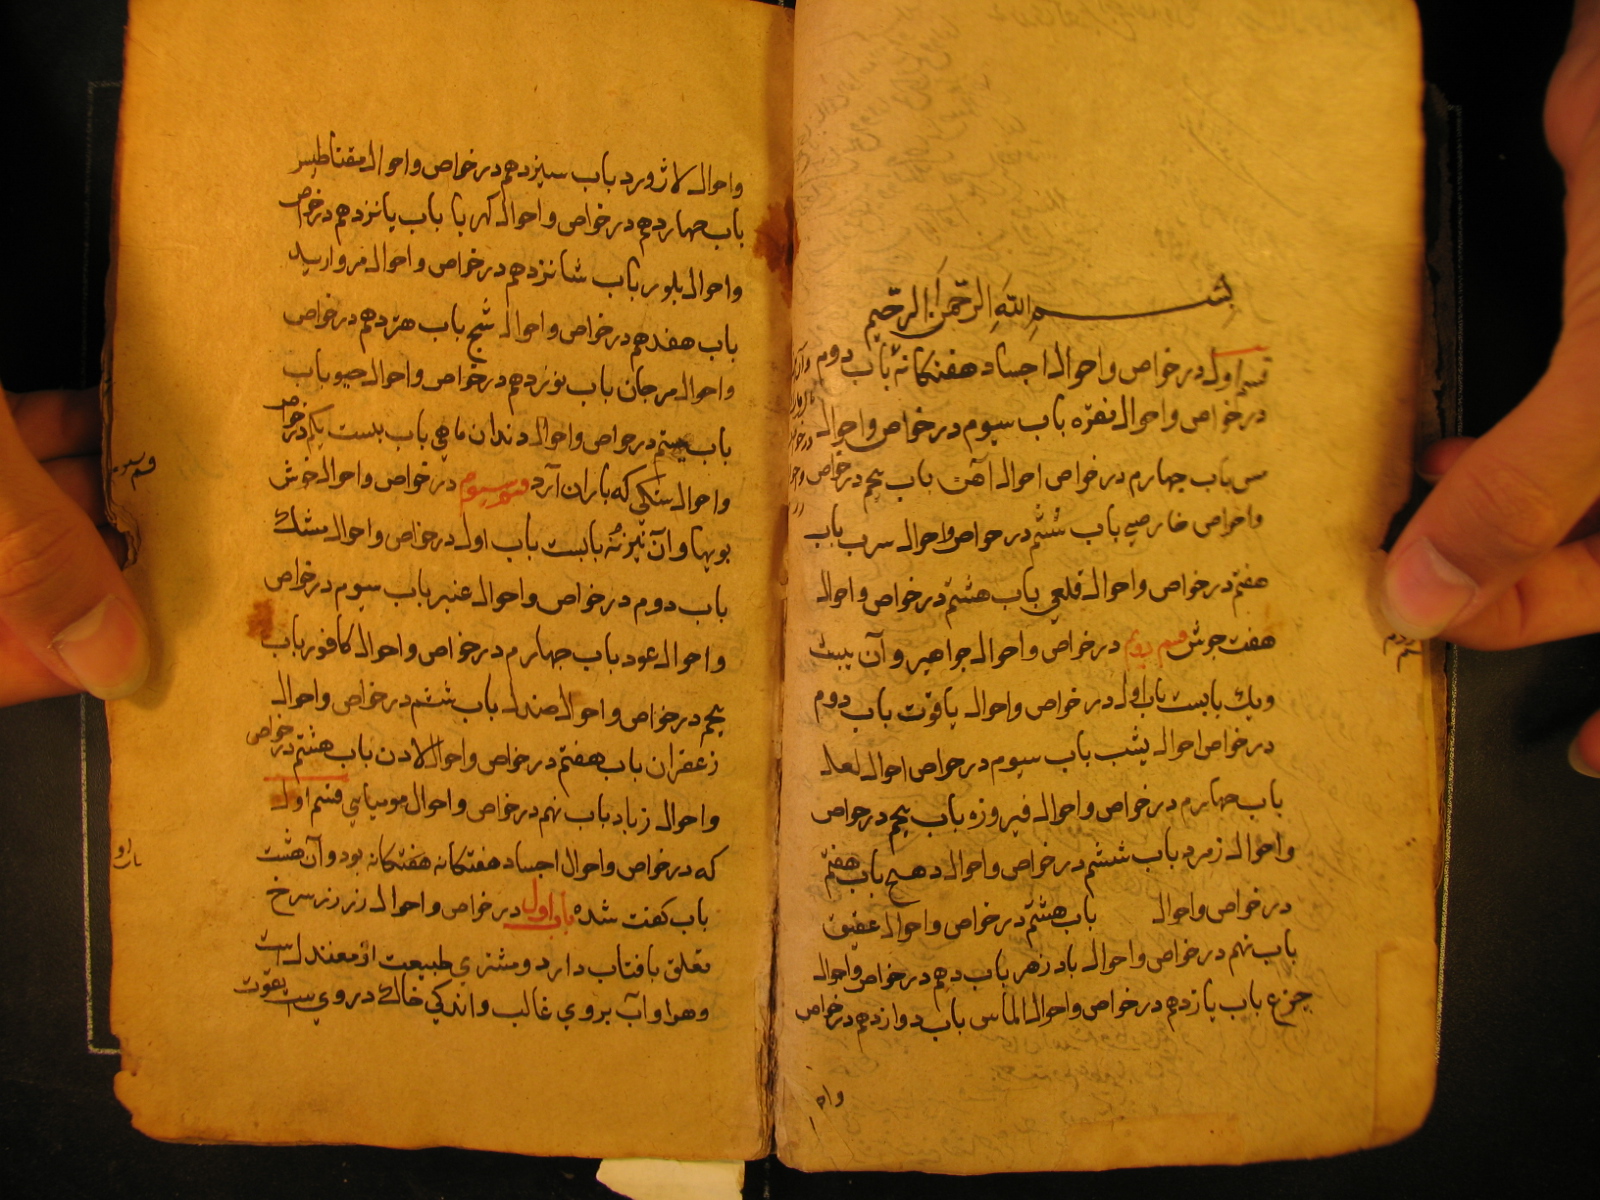 بسم الله الرحمن الرحیم
قسم اول در خواص واحوال اجساد هفتكانه باب دوم
در خواص واحوال نقره باب سیوم در خواص واحوال
مس باب چهارم در خواص احوال آهن باب پنجم در خواص
واحواص خارصیے باب ششم در خواص واحوال سرب باب
هفتم در خواص واحوال قلعی باب هشتم در خواص واحوال
هفت جوش قسم دویم در خواص واحوال جواهر وآن بیست
ویك بابست باب اول در خواص واحوال یاقوت باب دوم
در خواص احوال یشب باب سیوم در خواص احوال لعل
باب چهارم در خواص واحوال فیروزه باب پنجم در خواص
واحوال زمرد باب ششم در خواص واحوال دهنج باب هفتم
در خواص واحوال باب هشتم در خواص واحوال عقیق
باب نهم در خواص واحوال بادزهر باب دهم در خواص واحوال
جزع باب یازدهم در خواص واحوال الماس باب دوازدهم در خواص
واحو
واحوال لاژورد باب سیزدهم در خواص واحوال مقناطیس
باب چهاردهم در خواص واحوال كهربا باب پانزدهم در خواص
واحوال بلور باب شانزدهم در خواص واحوال مروارید
باب هفدهم در خواص واحوال شبج باب هژدهم در خواص
واحوال مرجان باب نوزدهم در خواص واحوال
باب بیستم در خواص واحوال دندان ماهی باب بیست یكم در خواص
واحوال سنكی كه باران آرد قسم سیوم در خواص واحوال خوش
قسم سیوم
بویها وآن نیز نُه بابست باب اول در خواص واحوال مشك
باب دوم در خواص واحوال عنبر باب سیوم در خواص
واحوال عود باب چهارم در خواص واحوال كافور باب
پنجم در خواص واحوال صندل باب ششم در خواص واحوال
زعفران باب هفتم در خواص واحوال لادن باب هشتم در خواص
واحوال زباد باب نهم در خواص واحوال مومیایی قسم اول
كه در خواص واحوال اجساد هفتكانه هفتكانه بود وآن هشت
باب كفت شده باب اول در خواص واحوال زر زر سرخ
تعلق بافتاب دارد ومشتری طبیعت او معتدل است
وهوا وآب بروی غالب واندكی خاك در وی است بقوت